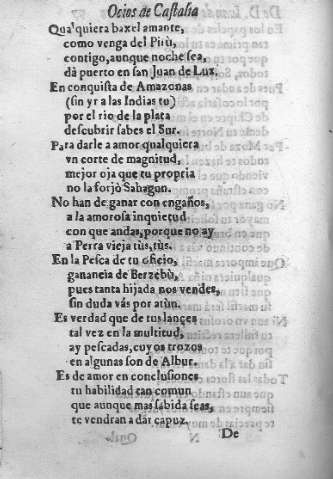 Ocios de Castalia
Qualquiera baxel amante,
como venga del Pirù,
contigo, aunque noche sea,
dà puerto en san Juan de Luz.
En conquista de Amazonas
(sin yr a las Indias tu)
por el rio de la plata
descubrir sabes el Sur.
Para darle a amor qualquiera
vn corte de magnitud,
mejor oja que tu propria
no la forjò Sahagun.
No han de ganar con engaños,
a la amorosa inquietud
con que andas, porque no ay
a Perra vieja tùs, tùs.
En la Pesca de tu oficio,
ganancia de Berzebù,
pues tanta hijada nos vendes,
sin duda vàs por atùn.
Es verdad que de tus lances
tal vez en la multitud,
ay pescadas, cuyos trozos
en algunas son de Albur.
Es de amor en conclusiones
tu habilidad tan comun
que aunque mas sabida seas,
te vendran a dàr capuz.
De